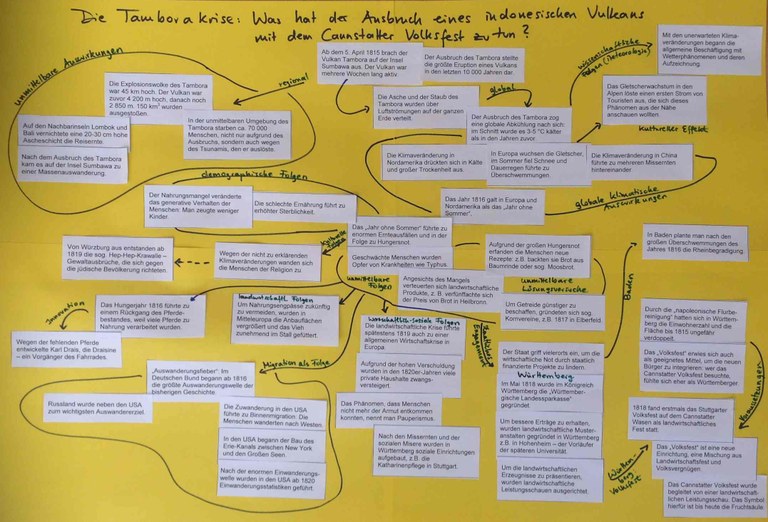 Die Tamborakrise: Was hat der Ausbruch eines indonesischen Vulkans
mit dem Cannstatter Volksfest zu tun?
unmittelbare Auswirkungen
regional
Die Explosionswolke des Tambora
war 45 km hoch. Der Vulkan war
zuvor 4 200 m hoch, danach noch
2 850 m. 150 km³ wurden
ausgestoßen.
Auf den Nachbarinseln Lombok und
Bali vernichtete eine 20-30 cm hohe
Ascheschicht die Reisernte.
Nach dem Ausbruch des Tambora
kam es auf der Insel Sumbawa zu
einer Massenauswanderung.
In der unmittelbaren Umgebung des
Tambora starben ca. 70 000
Menschen, nicht nur aufgrund des
Ausbruchs, sondern auch wegen
des Tsunamis, den er auslöste.
Ab dem 5. April 1815 brach der
Vulkan Tambora auf der Insel
Sumbawa aus. Der Vulkan war
mehrere Wochen lang aktiv.
Der Ausbruch des Tambora stellte
die größte Eruption eines Vulkans
in den letzten 10 000 Jahren dar.
global
Die Asche und der Staub des
Tambora wurden über
Luftströmungen auf der ganzen
Erde verteilt.
Der Ausbruch des Tambora zog
eine globale Abkühlung nach sich,
im Schnitt wurde es 3-5 °C kälter
als in den Jahren zuvor.
wissenschaftliche
Folgen (Meteorologie)
Mit den unerwarteten Klima-
veränderungen begann die
allgemeine Beschäftigung mit
Wetterphänomenen und deren
Aufzeichnung.
Das Gletscherwachstum in den
Alpen löste einen ersten Strom von
Touristen aus, die sich dieses
Phänomen aus der Nähe
anschauen wollten.
kultureller Effekt
Die Klimaveränderung in
Nordamerika drückten sich in Kälte
und großer Trockenheit aus.
In Europa wuchsen die Gletscher,
im Sommer fiel Schnee und
Dauerregen führte zu
Überschwemmungen.
Die Klimaveränderung in China
führte zu mehreren Missernten
hintereinander
globale klimatische
Auswirkungen
Das Jahr 1816 galt in Europa und
Nordamerika als das "Jahr ohne
Sommer".
demographische Folgen
Der Nahrungsmangel veränderte
das generative Verhalten der
Menschen: Man zeugte weniger
Kinder.
Die schlechte Ernährung führte zu
erhöhter Sterblichkeit.
Das „Jahr ohne Sommer" führte zu
enormen Ernteausfällen und in der
Folge zu Hungersnot.
Geschwächte Menschen wurden
Opfer von Krankheiten wie Typhus.
Von Würzburg aus entstanden ab
1819 die sog. Hep-Hep-Krawalle –
Gewaltausbrüche, die sich gegen
die jüdische Bevölkerung richteten.
Wegen der nicht zu erklärenden
Klimaveränderungen wandten sich
die Menschen der Religion zu.
unmittelbare
Folgen
Angesichts des Mangels
verteuerten sich landwirtschaftliche
Produkte, z.B. verfünffachte sich
der Preis von Brot in Heilbronn.
Aufgrund der großen Hungersnot
erfanden die Menschen neue
Rezepte: z.B. backten sie Brot aus
Baumrinde oder sog. Moosbrot.
unmittelbare
Lösungsversuche
Um Getreide günstiger zu
beschaffen, gründeten sich sog.
Kornvereine, z.B. 1817 in Elberfeld.
Baden
In Baden plante man nach den
großen Überschwemmungen des
Jahres 1816 die Rheinbegradigung.
Innovation
Das Hungerjahr 1816 führte zu
einem Rückgang des Pferde-
bestandes, weil viele Pferde zu
Nahrung verarbeitet wurden.
Wegen der fehlenden Pferde
entwickelte Karl Drais, die Draisine
– ein Vorgänger des Fahrrades.
landwirtschaftl. Folgen
Um Nahrungsengpässe zukünftig
zu vermeiden, wurden in
Mitteleuropa die Anbauflächen
vergrößert und das Vieh
zunehmend im Stall gefüttert.
wirtschaftlich-soziale Folgen
Die landwirtschaftliche Krise führte
spätestens 1819 auch zu einem
allgemeinen Wirtschaftskrise in
Europa.
Aufgrund der hohen Verschuldung
wurden in den 1820er-Jahren viele
private Haushalte zwangs-
versteigert.
Das Phänomen, dass Menschen
nicht mehr der Armut entkommen
konnten, nennt man Pauperismus.
Nach den Missernten und der
sozialen Misere wurden in
Württemberg soziale Einrichtungen
aufgebaut, z.B. die
Katharinenpflege in Stuttgart.
staatliches
Engagement
Der Staat griff vielerorts ein, um die
wirtschaftliche Not durch staatlich
finanzierte Projekte zu lindern.
Württemberg
Im Mai 1818 wurde im Königreich
Württemberg die „Württember-
gische Landessparkasse"
gegründet.
Um bessere Erträge zu erhalten,
wurden landwirtschaftliche Muster-
anstalten gegründet in Württemberg
z.B. in Hohenheim – der Vorläufer
der späteren Universität.
Um die landwirtschaftlichen
Erzeugnisse zu präsentieren,
wurden landwirtschaftliche
Leistungsschauen ausgerichtet.
Durch die „napoleonische Flurbe-
reinigung" hatten sich in Württem-
berg die Einwohnerzahl und die
Fläche bis 1815 ungefähr
verdoppelt.
Das „Volksfest" erwies sich auch
als geeignetes Mittel, um die neuen
Bürger zu integrieren: wer das
Cannstatter Volksfest besuchte,
fühlte sich eher als Württemberger.
Voraussetzungen
1818 fand erstmals das Stuttgarter
Volksfest auf dem Cannstatter
Wasen als landwirtschaftliches
Fest statt.
Das „Volksfest" ist eine neue
Einrichtung, eine Mischung aus
Landwirtschaftsfest und
Volksvergnügen.
Das Cannstatter Volksfest wurde
begleitet von einer landwirtschaft-
lichen Leistungsschau. Das Symbol
hierfür ist bis heute die Fruchtsäule.
Migration als Folge
„Auswanderungsfieber": Im
Deutschen Bund begann ab 1816
die größte Auswanderungswelle der
bisherigen Geschichte.
Russland wurde neben den USA
zum wichtigsten Auswandererziel.
Die Zuwanderung in den USA
führte zu Binnenmigration: Die
Menschen wanderten nach Westen.
In den USA begann der Bau des
Erie-Kanals zwischen New York
und den Großen Seen.
Nach der enormen Einwanderungs-
welle wurden in den USA ab 1820
Einwanderungsstatistiken geführt.